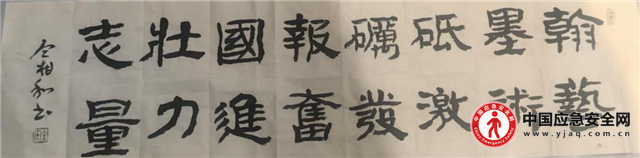 翰墨砥礪報國壮志
藝術激發奮進力量
仝相和书
中国应急安全网
www.yjaq.com.cn